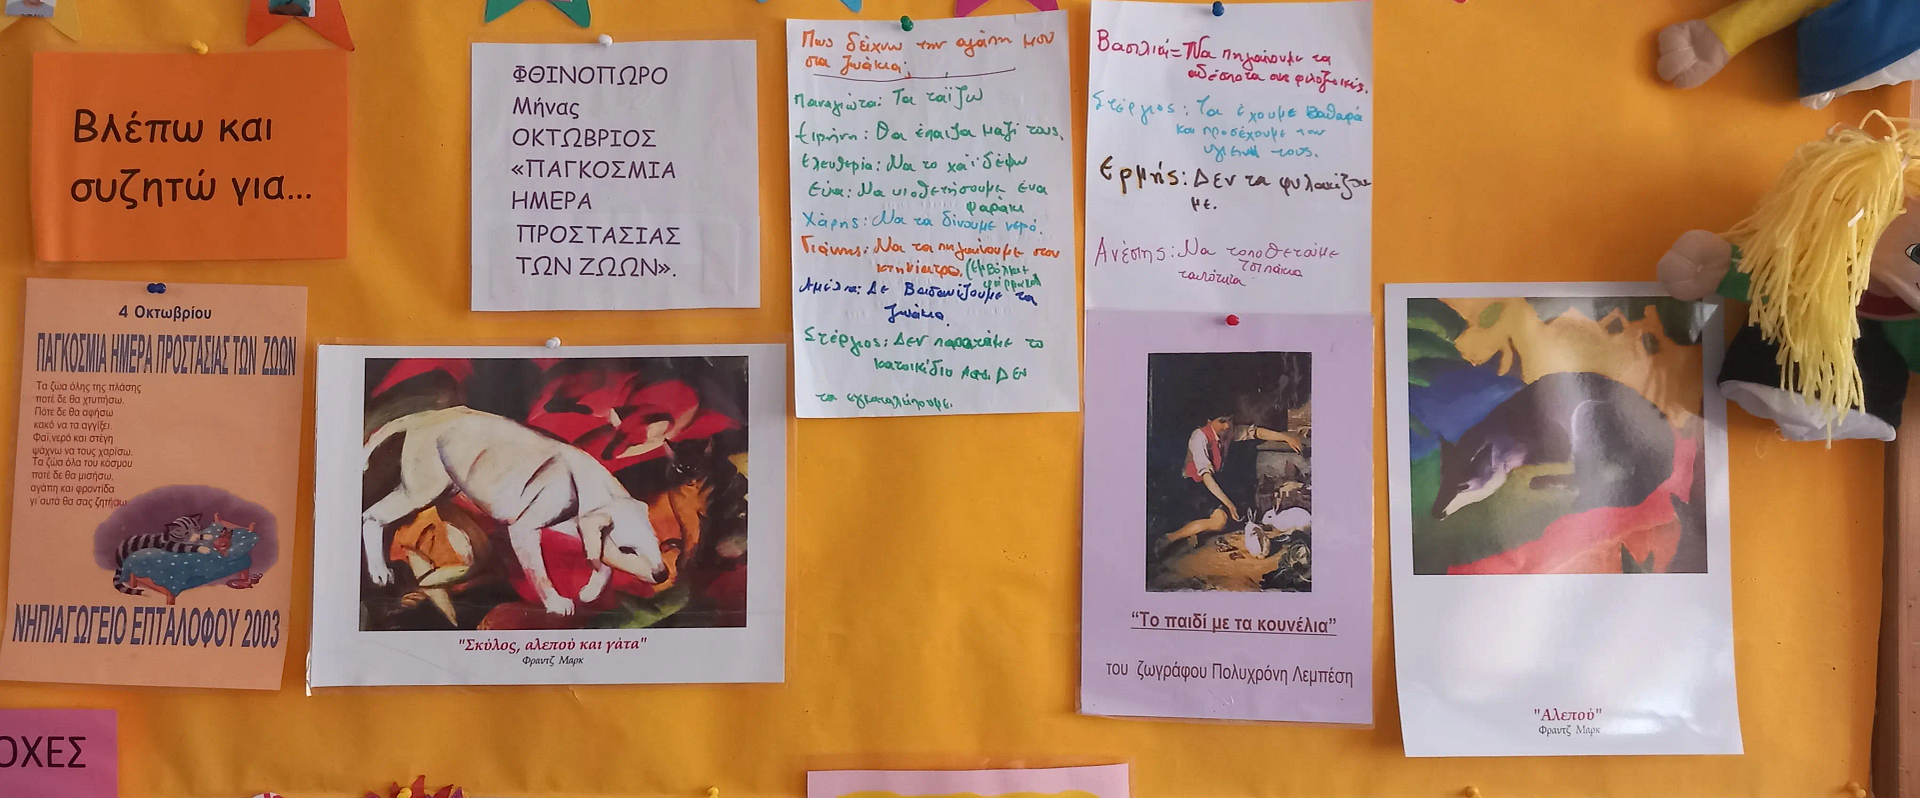 Βλέπω και
συζητώ για...
ΦΘΙΝΟΠΩΡΟ
Μήνας
ΟΚΤΩΒΡΙΟΣ
«ΠΑΓΚΟΣΜΙΑ
ΗΜΕΡΑ
ΠΡΟΣΤΑΣΙΑΣ
ΤΩΝ ΖΩΩΝ».
Πως δείχνω την αγάπη μου
στα ζωάκια;
Παναγιώτα: Τα ταΐζω
Ειρήνη: Θα έπαιζα μαζί τους.
Ελευθερία: Να το χαϊδεψω
Εύα: Να υιοθετήσουμε ένα
ψαράκι
Χάρης: Να τα δίνουμε νερό.
Γιάννης: Να τα πηγαίνουμε στον
κτηνίατρο. (εμβόλια+
φάρμακα)
Αμέλια: Δε βασανίζουμε τα
ζωάκια.
Στέργιος: Δεν παρατάμε το
κατοικίδιο μας. Δεν
το εγκαταλείπουμε.
Βασιλική= Να πηγαίνουμε τα
αδέσποτα στις φιλοζωικές.
Στέργιος: Τα έχουμε καθαρά
και προσέχουμε την
υγιεινή τους.
Ερμής: Δεν τα φυλακίζου
με.
Ανέστης: Να τοποθετούμε
τσιπάκια
ταυτότητα
4 Οκτωβρίου
ΠΑΓΚΟΣΜΙΑ ΗΜΕΡΑ ΠΡΟΣΤΑΣΙΑΣ ΤΩΝ ΖΩΩΝ
Τα ζώα όλης της πλάσης
ποτέ δε θα χτυπήσω.
Πότε δε θα αφήσω
κακό να τα αγγίξει.
Φαϊ,νερό και στέγη
ψάχνω να τους χαρίσω.
Τα ζώα όλα του κόσμου
ποτέ δε θα μισήσω,
αγάπη και φροντίδα
γι αυτά θα σας ζητήσω
ΝΗΠΙΑΓΩΓΕΙΟ ΕΠΤΑΛΟΦΟΥ 2003
"Σκύλος, αλεπού και γάτα"
Φραντζ Μαρκ
“Το παιδί με τα κουνέλια”
του ζωγράφου Πολυχρόνη Λεμπέση
"Αλεπού"
Φραντζ Μαρκ
ΟΧΕΣ